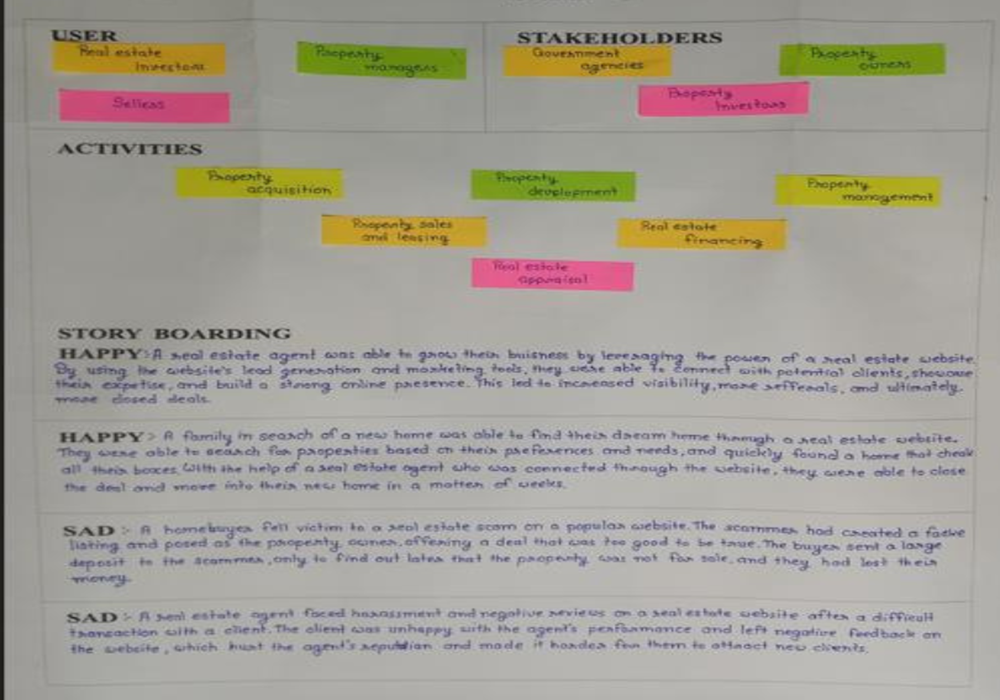 USER
Real estate
investors
Property
managers
Sellers
STAKEHOLDERS
Government
agencies
Property
owners
Property
Investors
ACTIVITIES
Property
acquisition
Property
development
Property
management
Property sales
and leasing
Real estate
financing
Real estate
appraisal
STORY BOARDING
HAPPY:- A real estate agent was able to grow their buisness by leveraging the power of a real estate website.
By using the website's lead generation and marketing tools, they were able to connect with potential clients, showcase
their expertise, and build a strong online presence. This led to increased visibility, more refferals, and ultimately.
more closed deals.
HAPPY:- A family in search of a new home was able to find their dream home through a real estate website.
They were able to search for properties based on their preferences and needs, and quickly found a home that cheak
all their boxes. With the help of a real estate agent who was connected through the website, they were able to close
the deal and move into their new home in a matter of weeks.
SAD :- A homebuyer fell victim to a real estate scam on a popular website. The scammer had created a facke
listing and posed as the property owner, offering a deal that was too good to be true. The buyer sent a large
deposit to the scammer, only to find out later that the property was not for sale, and they had lost their
money.
SAD :- A real estate agent faced harassment and negative reviews on a real estate website after a difficult
transaction with a client. The client was unhappy with the agent's performance and left negative feedback on
the website, which hurt the agent's and made it harder for them to attract new clients.